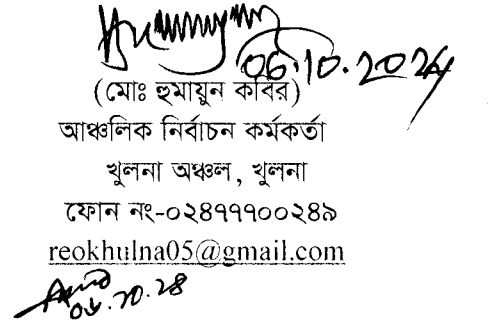 06.10.2024
(মোঃ হুমায়ুন কবির)
আঞ্চলিক নির্বাচন কর্মকর্তা
খুলনা অঞ্চল, খুলনা
ফোন নং-০২৪৭৭৭০০২৪৯
reokhulna05@gmail.com